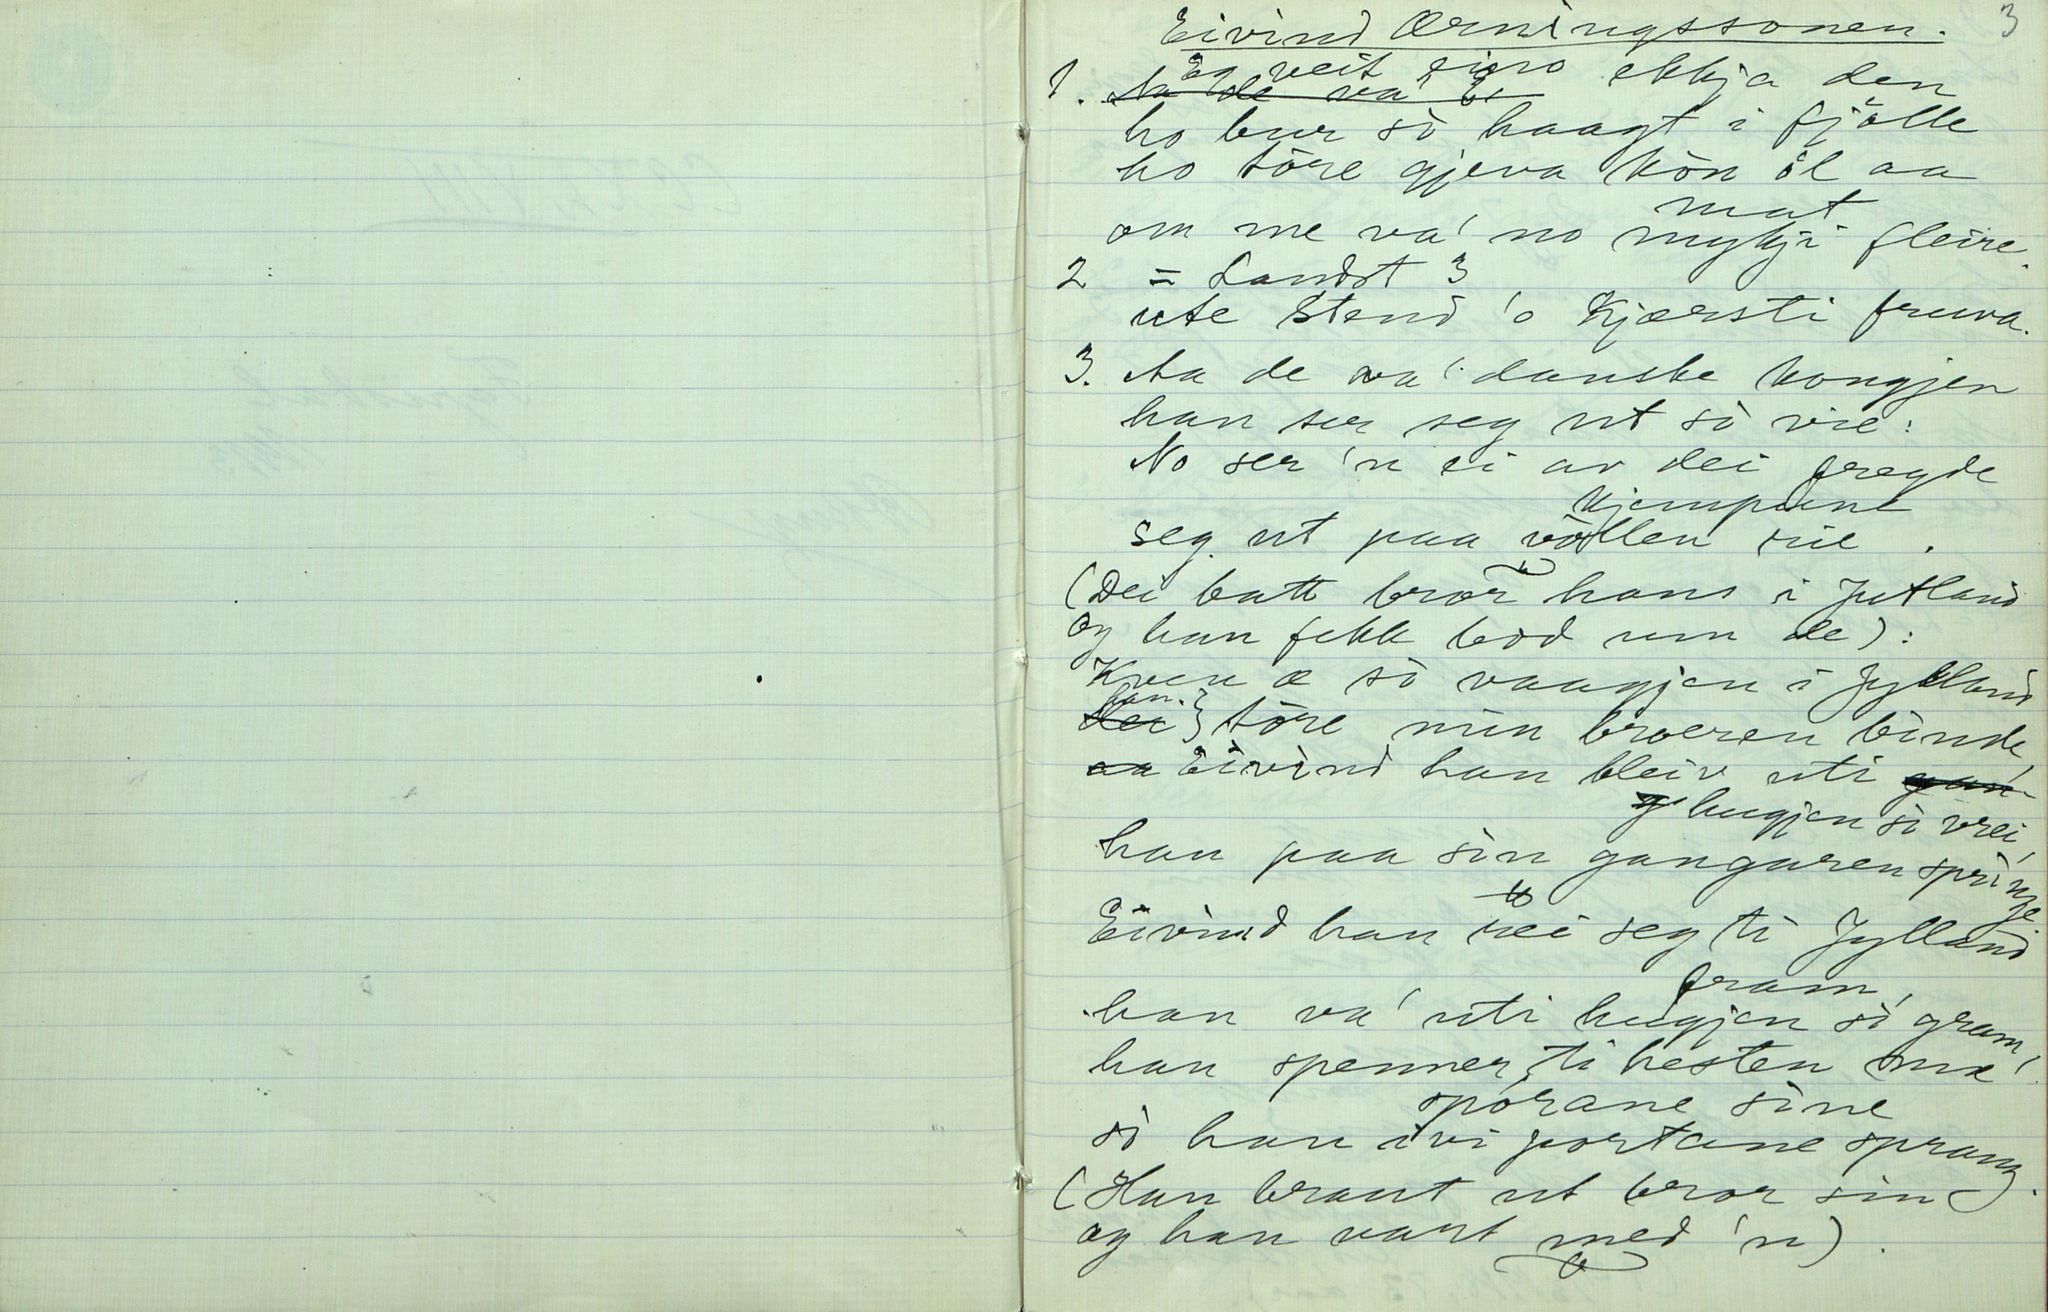 3
Eivind Ørningssonen.
1. Eg veit eino ekkja den
Aa de va'
ho bur so haagt i fjölle
ho töre gjeva kön öl aa
mat
om me va' no mykji fleire.
2 = Landst 3
ute stend 'o Kjærsti fruva.
3. Aa de va' danske kongjen
han ser seg ut so vie:
No ser 'n ei av dei fregde
kjempune
seg ut paa völlen rie.
(Dei batt bror hans i Jutland
og han fekk bod um de):
Kven æ so vaagjen i Jylland
han
dei } töre min broeren binde,
aa Eivind han bleiv uti
hugjen so vrei,
han paa sin gangaren springe
Eivind han rei seg ti Jylland
fram,
han va' uti hugjen so gram,
han spenner ti hesten mæ'
sporane sine
so han ivi portane sprang.
(Han braut ut bror sin
og han vart med 'n).